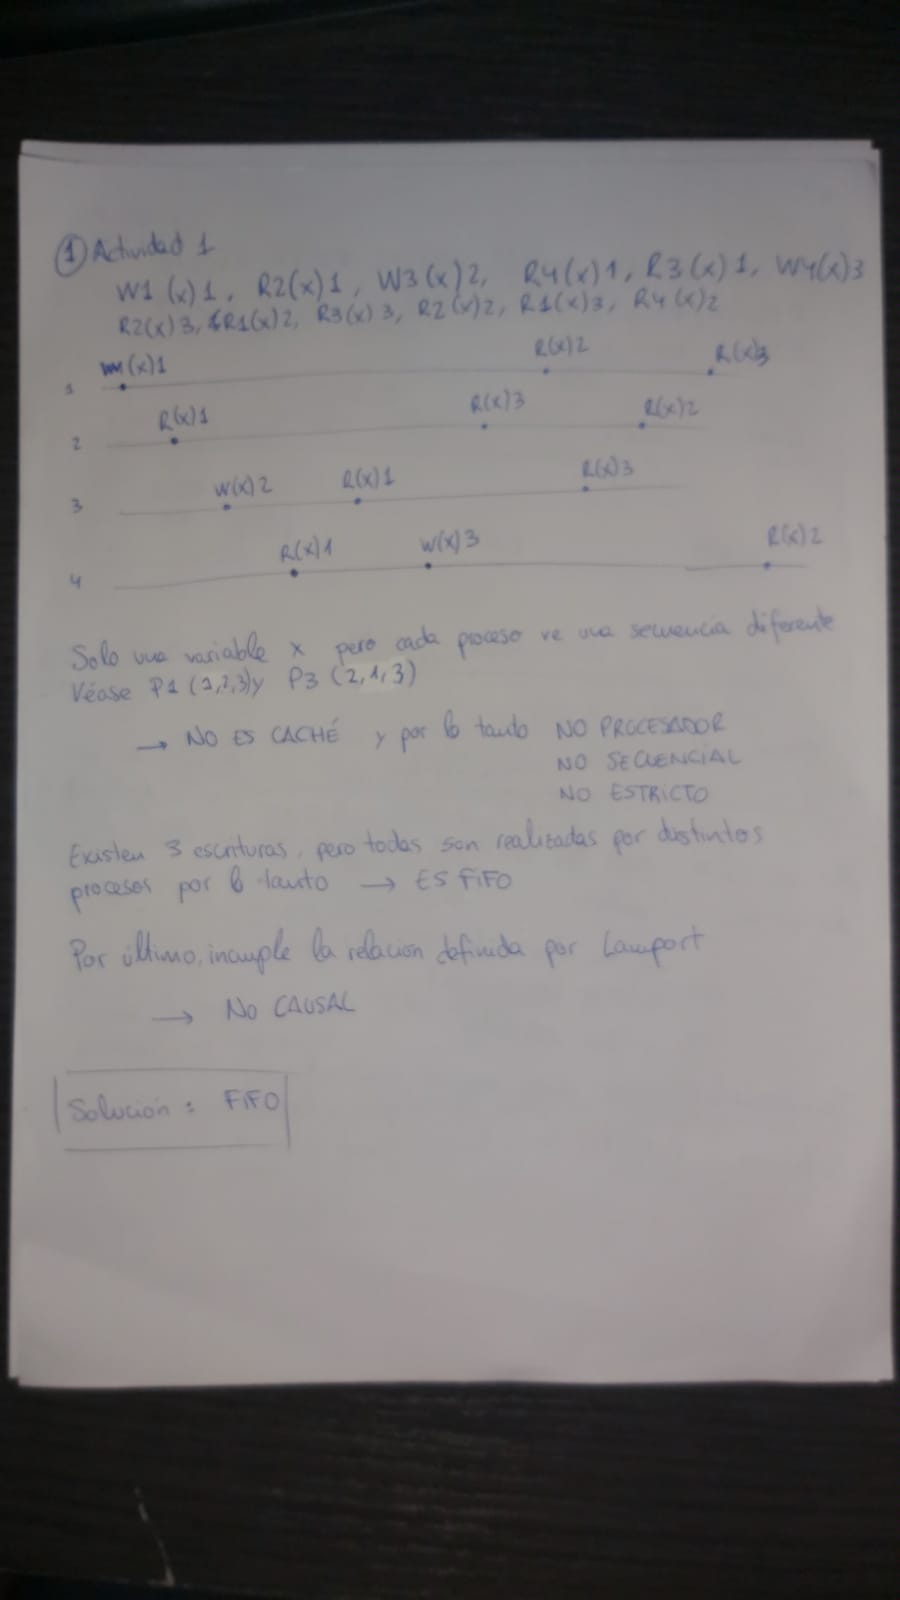 ① Actividad 1
W1(x)1, R2(x)1, W3(x)2, R4(x)1, R3(x)1, W4(x)3
R2(x)3, R1(x)2, R3(x)3, R2(x)2, R1(x)3, R4(x)2
1 W(x)1 R(x)2 R(x)3
2 R(x)1 R(x)3 R(x)2
3 W(x)2 R(x)1 R(x)3
4 R(x)1 W(x)3 R(x)2
Solo una variable x pero cada proceso ve una secuencia diferente
Véase P1 (1,2,3) y P3 (2,1,3)
→ NO ES CACHÉ y por lo tanto NO PROCESADOR
NO SECUENCIAL
NO ESTRICTO
Existen 3 escrituras, pero todas son realizadas por distintos
procesos por lo tanto → ES FIFO
Por último, incumple la relacion definida por Lamport
→ NO CAUSAL
Solución: FIFO